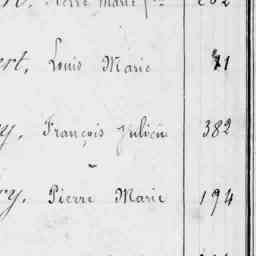 Pierre Marie
ert, Louis Marie 71
y, François Julien 382
ry, Pierre Marie 194